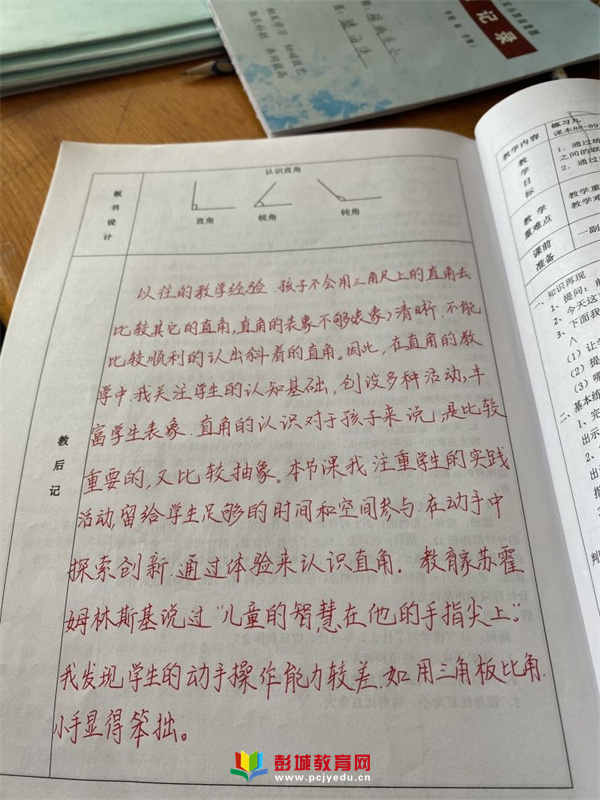 记录
认识直角
板书设计
直角
锐角
钝角
教后记
以往的教学经验,孩子不会用三角尺上的直角去
比较其它的直角,直角的表象不够(表象)清晰,不能
比较顺利的认出斜着的直角。因此,在直角的教
学中我关注学生的认知基础,创设多种活动,丰
富学生表象.直角的认识对于孩子来说,是比较
重要的,又比较抽象。本节课我注重学生的实践
活动,留给学生足够的时间和空间参与,在动手中
探索创新.通过体验来认识直角.教育家苏霍
姆林斯基说过"儿童的智慧在他的手指尖上"。
我发现学生的动手操作能力较差.如用三角板比角.
小手显得笨拙。
教学内容
练习九
课本88-89
教学目标
1.通过
之间的联
2.通过
教学重难点
教学重
教学难
课前准备
一副
一、知识再现
1、提问:
2、今天这
3、下面我
(1)让
(2)提
(3)哪
二、基本练
1、完
出示
2、
出
3、
出示
彭城教育网
www.pcjyedu.cn